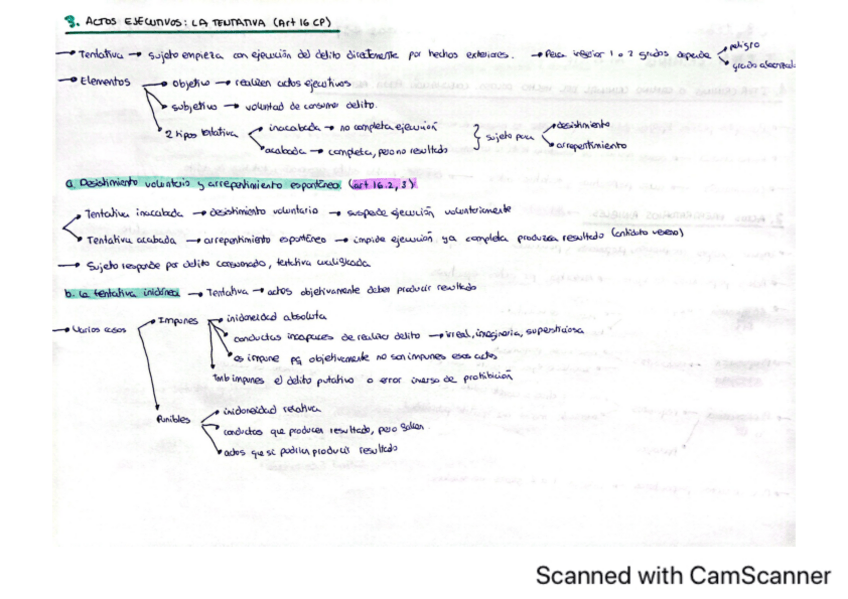 3. ACTOS EJECUTIVOS: LA TENTATIVA (Art 16 CP)
→ Tentativa → sujeto empieza con ejecución del delito directamente por hechos exteriores. → Pena inferior 1 o 2 grados depende peligro
grado alcanzado
→ Elementos → objetivo → realizan actos ejecutivos
subjetivo → voluntad de consumo delito.
2 tipos tentativa inacabada → no completa ejecución
acabada → completa, pero no resultado } sujeto para desistimiento
arrepentimiento
a. Desistimiento voluntario y arrepentimiento espontáneo (art 16.2, 3)
Tentativa inacabada → desistimiento voluntario → suspende ejecución voluntariamente
Tentativa acabada → arrepentimiento espontáneo → impide ejecución ya completa produzca resultado (antídoto veneno)
→ Sujeto responde por delito consumado, tentativa cualificada
b. La tentativa inidónea → Tentativa → actos objetivamente deben producir resultado
→ Varios casos → Impunes → inidoneidad absoluta
conductas incapaces de realizar delito → irreal, imaginaria, supersticiosa
es impune pq objetivamente no son impunes esos actos
Tamb impunes el delito putativo o error inverso de prohibición
Punibles → inidoneidad relativa
conductas que producen resultado, pero
actos que sí podrían producir resultado
Scanned with CamScanner